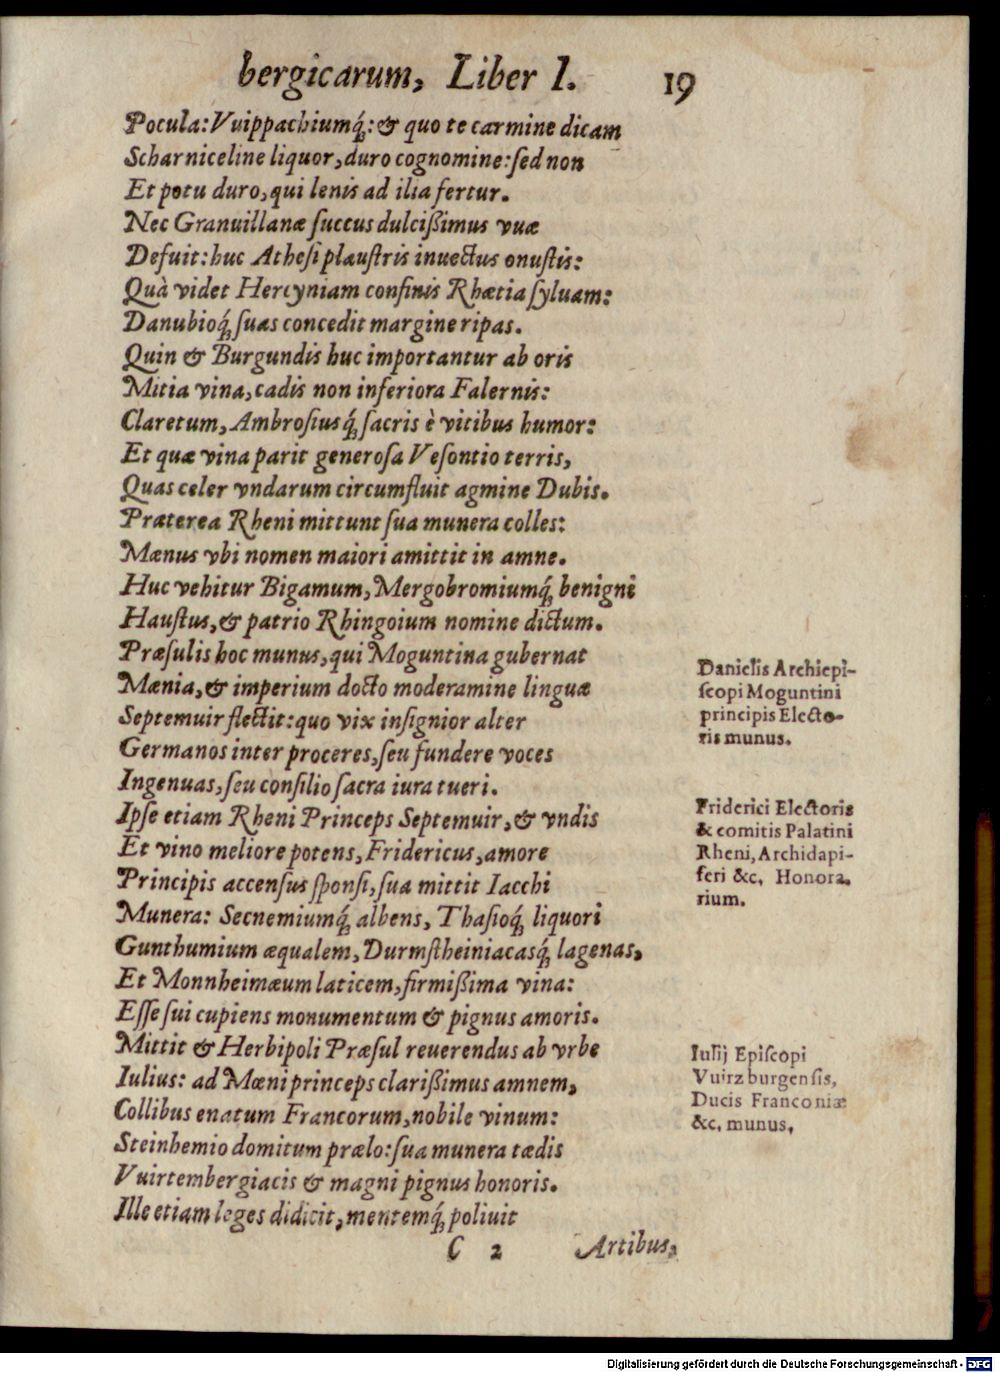 bergicarum, Liber I. 19
Pocula: Vuippachiumq́;: & quo te carmine dicam
Scharniceline liquor, duro cognomine: ſed non
Et potu duro, qui lenis ad ilia fertur.
Nec Granuillanæ ſuccus dulcißimus vuæ
Defuit: huc Atheſi plauſtris inuectus onuſtis:
Quà videt Hercyniam confinis Rhætia ſyluam:
Danubioq́; ſuas concedit margine ripas.
Quin & Burgundis huc importantur ab oris
Mitia vina, cadis non inferiora Falernis:
Claretum, Ambroſiusq́; ſacris è vitibus humor:
Et quæ vina parit generoſa Veſontio terris,
Quas celer vndarum circumfluit agmine Dubis.
Præterea Rheni mittunt ſua munera colles:
Mænus vbi nomen maiori amittit in amne.
Huc vehitur Bigamum, Mergobromiumq́; benigni
Hauſtus, & patrio Rhingoium nomine dictum.
Præſulis hoc munus, qui Moguntina gubernat
Mænia, & imperium docto moderamine linguæ
Septemuir flectit: quo vix inſignior alter
Germanos inter proceres, ſeu fundere voces
Ingenuas, ſeu conſilio ſacra iura tueri.
Ipſe etiam Rheni Princeps Septemuir, & vndis
Et vino meliore potens, Fridericus, amore
Principis accenſus ſponſi, ſua mittit Iacchi
Munera: Secnemiumq́; albens, Thaſioq́; liquori
Gunthumium æqualem, Durmſtheiniacasq́; lagenas,
Et Monnheimæum laticem, firmißima vina:
Eſſe ſui cupiens monumentum & pignus amoris.
Mittit & Herbipoli Præſul reuerendus ab vrbe
Iulius: ad Mæni princeps clarißimus amnem,
Collibus enatum Francorum, nobile vinum:
Steinhemio domitum prælo: ſua munera tædis
Vuirtembergiacis & magni pignus honoris.
Ille etiam leges didicit, mentemq́; poliuit
C 2 Artibus,
Danielis Archiepi-
ſcopi Moguntini
principis Electo-
ris munus.
Friderici Electoris
& comitis Palatini
Rheni, Archidapi-
feri &c. Honora,
rium.
Iulij Epiſcopi
Vuirzburgenſis,
Ducis Franconiæ
&c. munus,
Digitalisierung gefördert durch die Deutsche Forschungsgemeinschaft - DFG